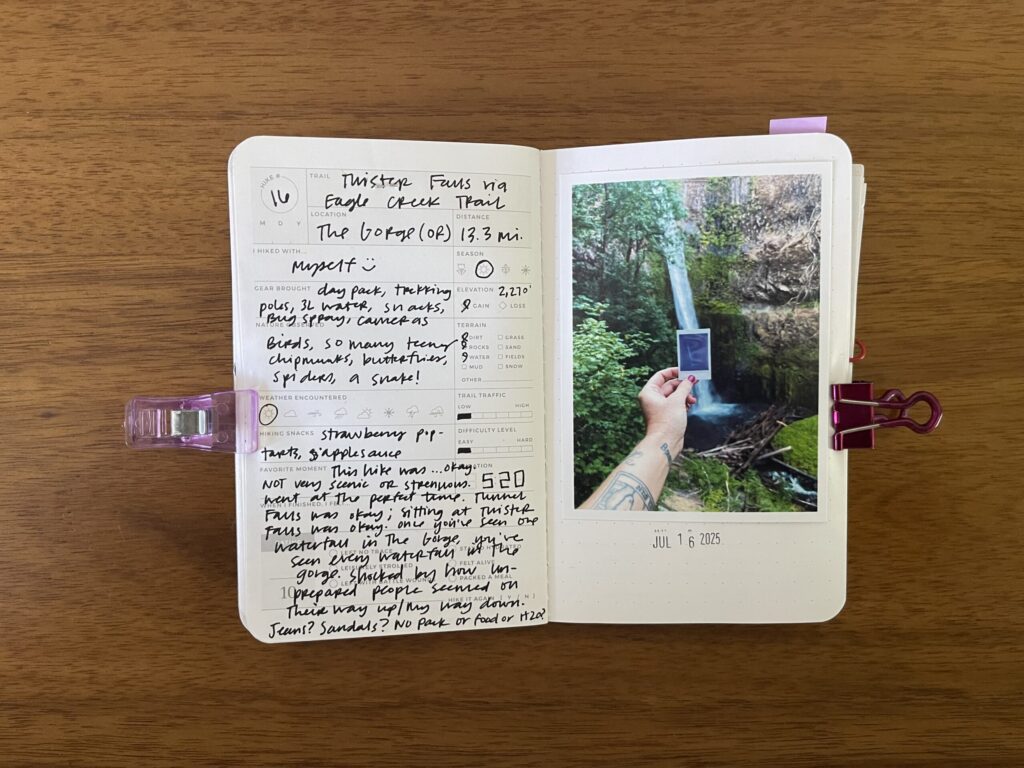 HIKE #
16
M D Y
TRAIL Twister Falls via
Eagle Creek Trail
LOCATION
The Gorge (OR)
DISTANCE
13.3 mi.
I HIKED WITH...
Myself
SEASON
GEAR BROUGHT day pack, trekking
poles, 3L water, snacks,
Bug spray, cameras
ELEVATION 2,270'
GAIN LOSS
NATURE OBSERVED
Birds, so many teeny
chipmunks, butterflies,
spiders, a snake!
TERRAIN
DIRT GRASS
ROCKS SAND
WATER FIELDS
MUD SNOW
OTHER
WEATHER ENCOUNTERED
TRAIL TRAFFIC
LOW HIGH
HIKING SNACKS strawberry pop-
tarts, applesauce
DIFFICULTY LEVEL
EASY HARD
FAVORITE MOMENT This hike was...okay.
Not very scenic or strenuous.
520
Went at the perfect time. Tunnel
WHEN I FINISHED, I FELT
Falls was okay; sitting at Twister
Falls was okay. Once you've seen one
waterfall in The Gorge, you've
seen every waterfall in the
LEFT NO TRACE
gorge. Shocked by how un-
LEISURELY STROLLED FELT ALIVE
prepared people seemed on
PACKED A MEAL
their way up/my way down.
HIKE IT AGAIN ( Y | N )
Jeans? Sandals? No pack or food or H2O?
JUL 16 2025